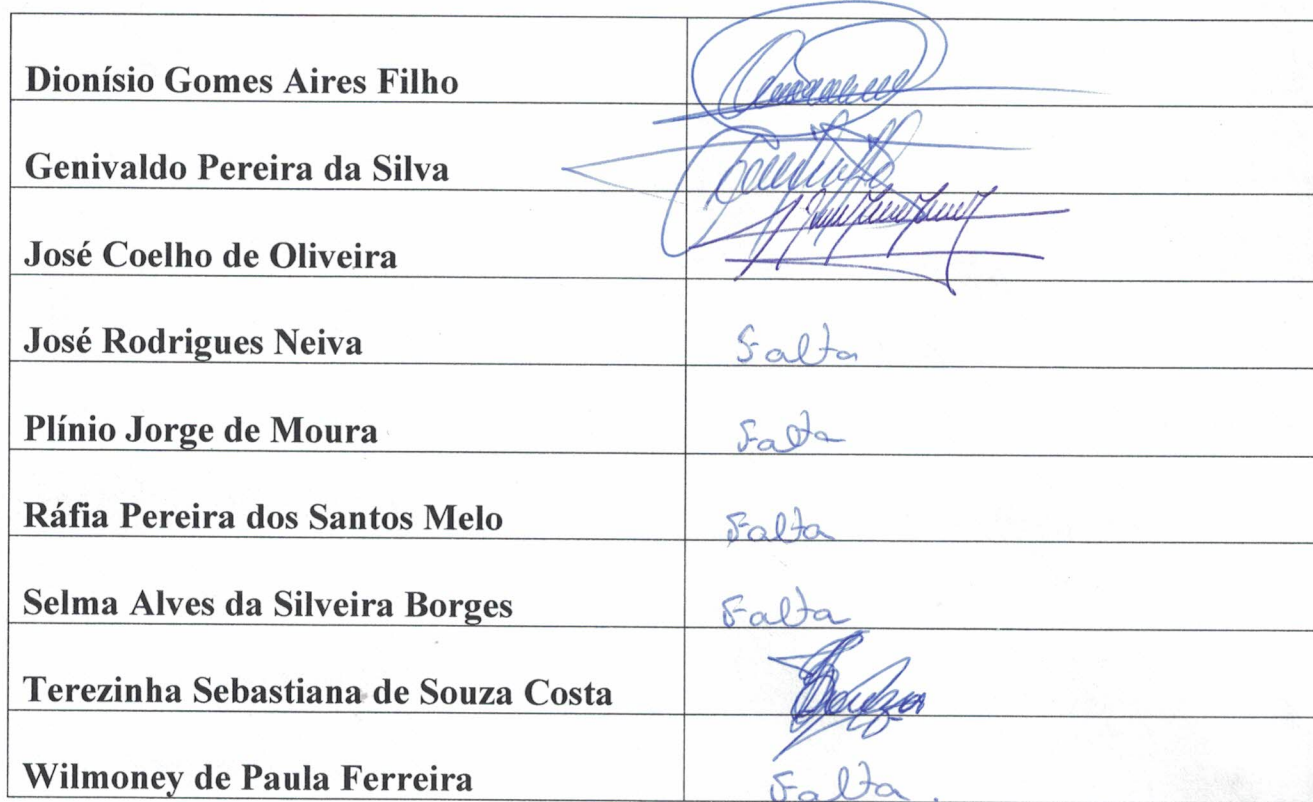 Dionísio Gomes Aires Filho
Genivaldo Pereira da Silva
José Coelho de Oliveira
José Rodrigues Neiva Falta
Plínio Jorge de Moura Falta
Ráfia Pereira dos Santos Melo Falta
Selma Alves da Silveira Borges Falta
Terezinha Sebastiana de Souza Costa
Wilmoney de Paula Ferreira Falta.